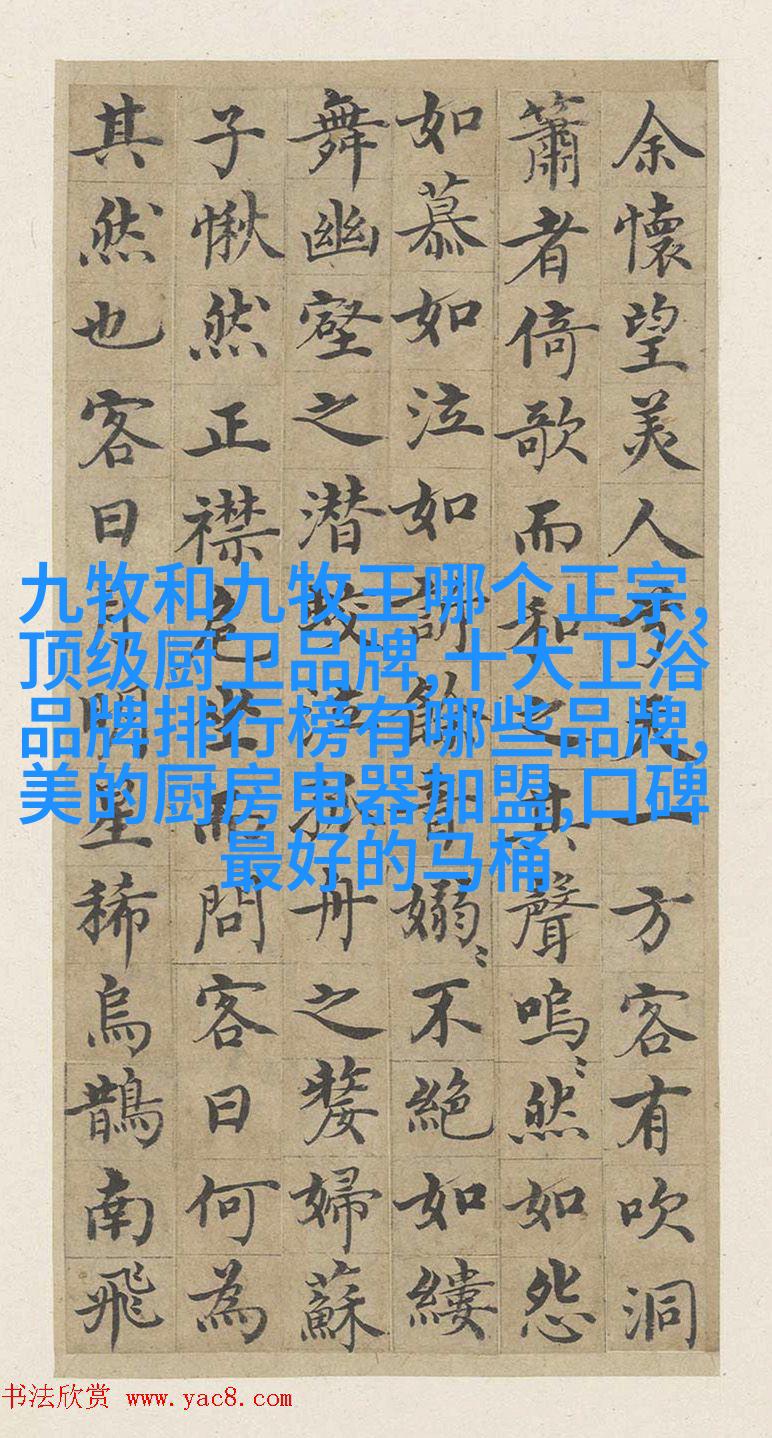 余懷望美人兮天一方客有吹洞
簫者倚歌而和之其聲嗚〻然如怨
如慕如泣如訴餘音嫋〻不絶如縷
舞幽壑之潜蛟泣孤舟之嫠婦蘇
子愀然正襟危坐而問客曰何為
其然也客曰月明星稀烏鵲南飛
九牧和九牧王哪个正宗,
顶级厨卫品牌,十大卫浴
品牌排行榜有哪些品牌,
美的厨房电器加盟,口碑
最好的马桶
书法欣赏 www.yac8.com